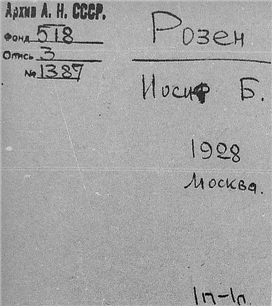 Архив А. Н. СССР.
Фонд 518
Опись 3
№ 1387
Розен
Иосиф Б.
1928
Москва.
1п-1п.